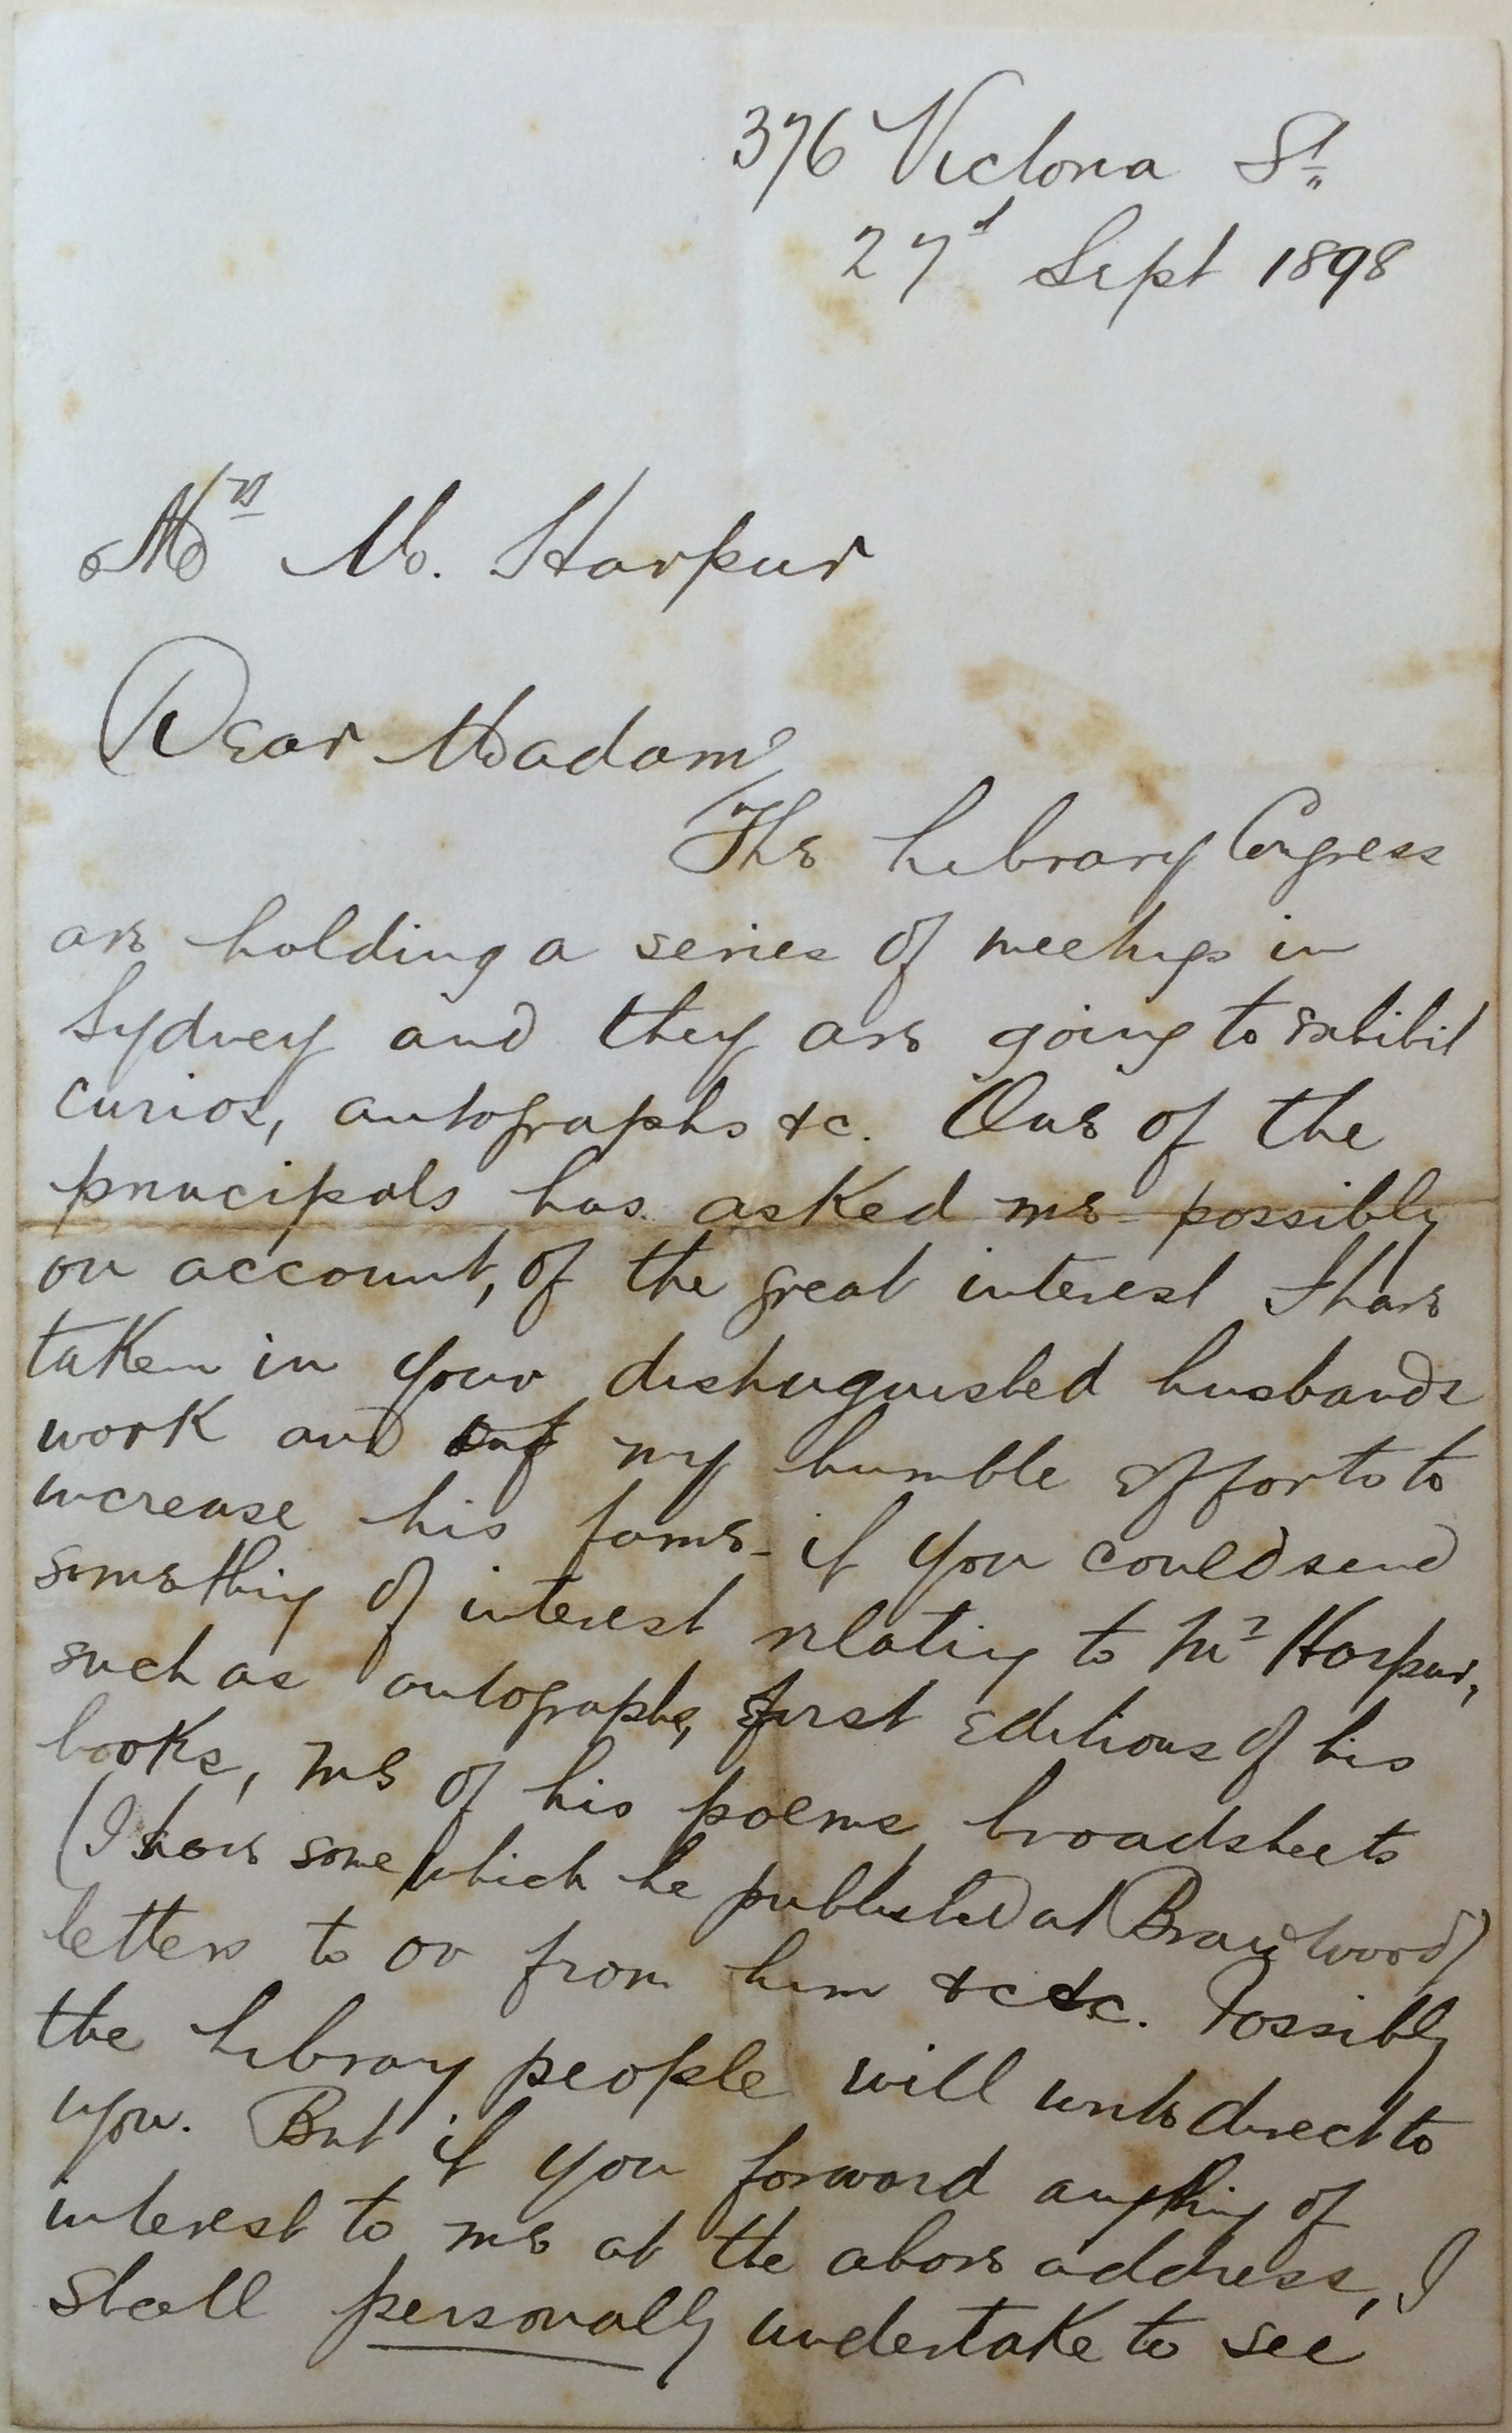 376 Victoria St.
27d Sept 1898
Mrs M. Harpur
Dear Madam,
The Library Congress
are holding a series of meetings in
Sydney and they are going to exhibit
curios, autographs &c. One of the
principals has asked me - possibly
on account, of the great interest I have
taken in your distinguished husbands
work and my humble efforts to
increase his fame - if you could send
something of interest relating to Mr Harpur,
such as autographs, first editions of his
books, ms of his poems, broadsheets
(I have some which he published at Braidwood)
letters to or from him &c &c. Possibly
the Library people will write direct to
you. But if you forward anything of
interest to me at the above address, I
shall personally undertake to see